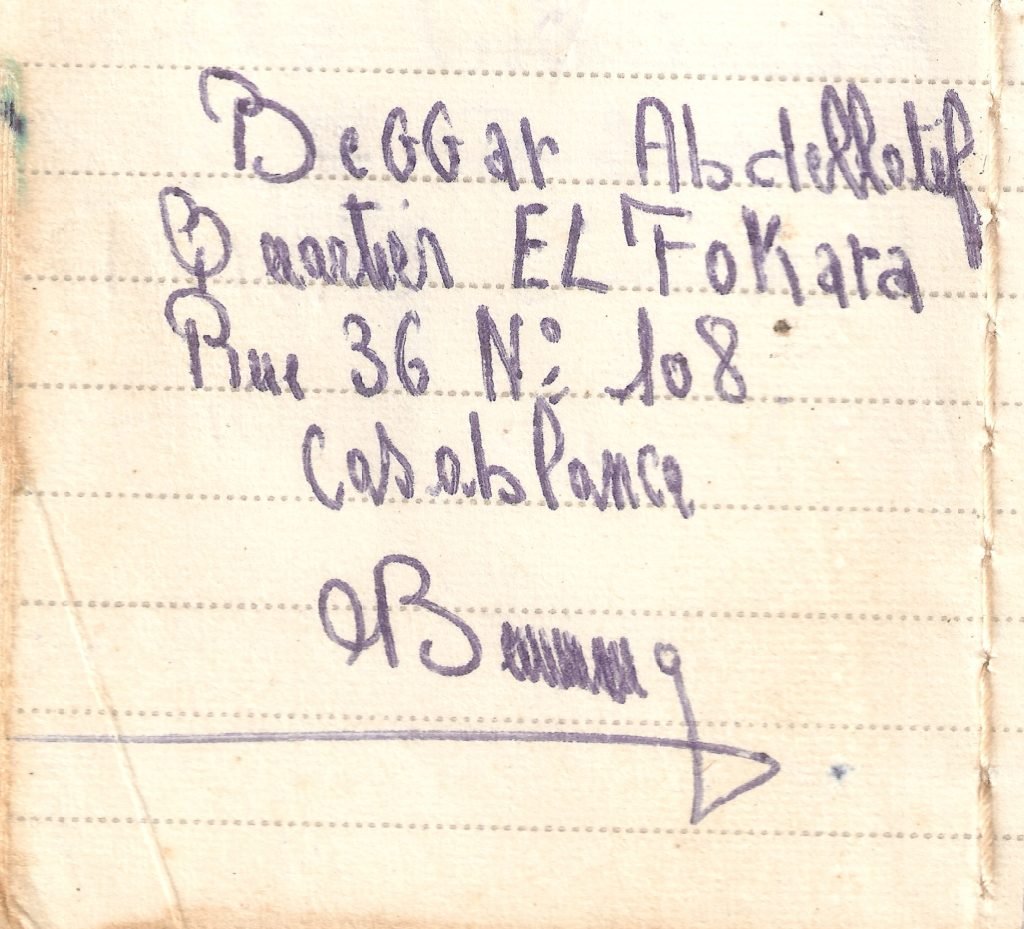 BeGGar Abdellatif
Quartier EL FoKara
Rue 36 N° 108
Casablanca